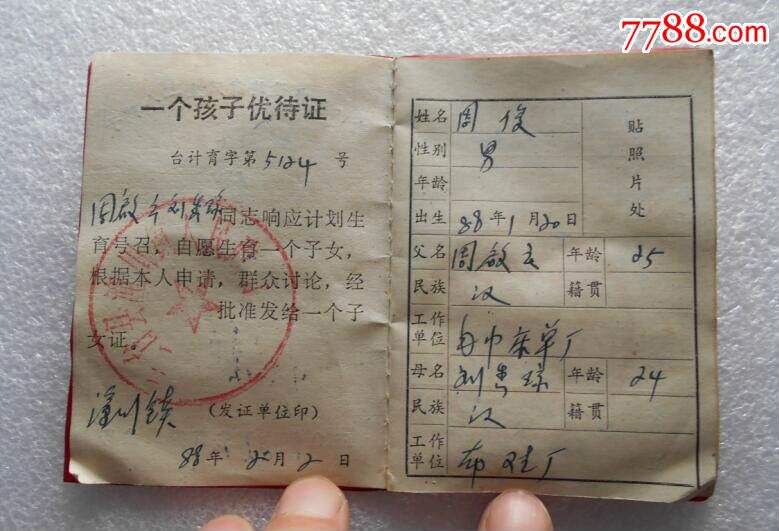 7788.com
一个孩子优待证
台计育字第5124号
同志响应计划生
育号召，自愿生育一个子女，
根据本人申请，群众讨论，经
批准发给一个子
女证。
(发证单位印)
88年 月2日
姓名 周俊
贴照片处
性别 男
年龄
出生 88年1月20日
父名 周啟 年龄 25
民族 汉 籍贯
工作单位 毛巾床单厂
母名 刘贵琼 年龄 24
民族 汉 籍贯
工作单位